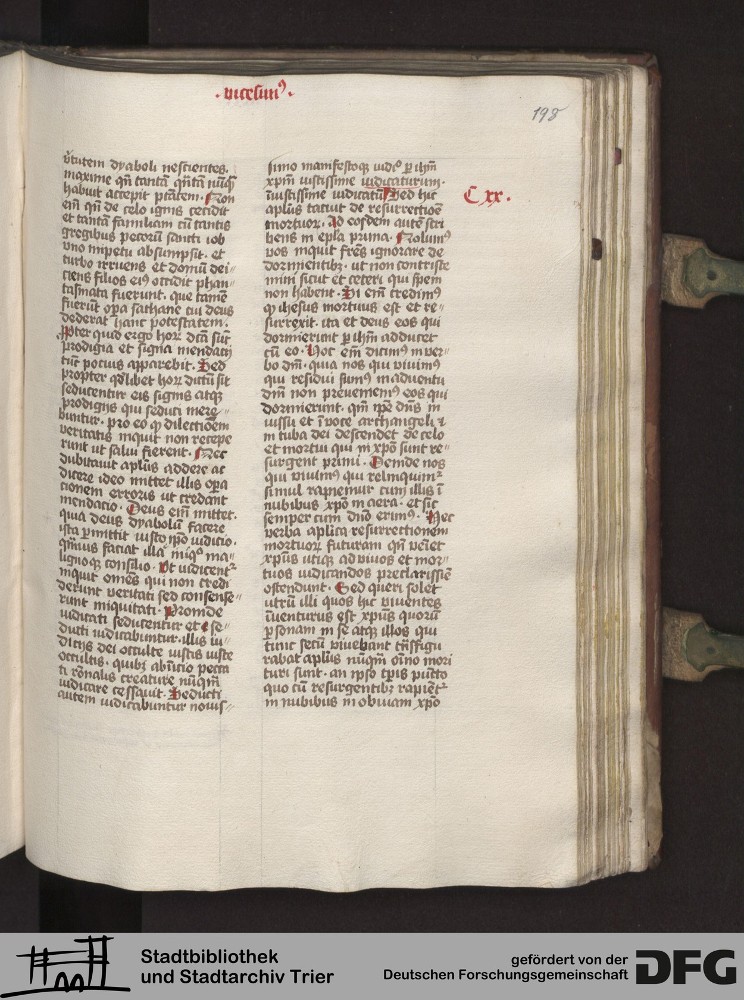 .vicesimꝰ.
198
v̓tutem dyaboli nescientes.
maxime qn̄ tantā qn̄tā nūq̄
habuit accepit ptātem. Non
em̄ qn̄ de celo ignis cecidit
et tantā familiam cū tantis
gregibus pecorū sancti iob
vno impetu absumpsit. et
turbo irruens et domū dei-
ciens filios eiꝰ occidit phan-
tasmata fuerunt. que tamē
fuerūt oꝑa sathane cui deus
dederat hanc potestatem.
Ꝓpter quid ergo hoꝝ dc̄a sūt
prodigia et signa mendacij
tūc pocius apparebit. Sed
propter qdlibet hoꝝ dictū sit
seducentur eis signis atqꝫ
prodigijs qui seduci mere-
buntur. pro eo ꝙ dilectioēm
veritatis inquit non recepe
runt ut salui fierent. Nec
dubitauit apl̄us addere ac
dicere ideo mittet illis oꝑa
cionem erroris ut credant
mendacio. Deus eim̄ mittet.
quia deus dyabolū facere
ista ꝑmittit iusto ip̄o iudicio.
qͣmuis faciat illa iniqͦ ma-
lignoqꝫ consilio. Ut iudicentᷣ
inquit om̄es qui non credi
derunt veritati sed consense-
runt iniquitati. Proinde
iudicati seducentur et se-
ducti iudicabuntur. illis iu-
dicijs dei occulte iustis iuste
occultis. quibꝫ ab īnicio pecca
ti rōnalis creature nūqm̄
iudicare cessauit. Seducti
autem iudicabuntur nouis-
simo manifestoqꝫ iudiͦ ꝑ ih̄m
xp̄m iustissime iudicaturum.
iniustissime iudicatū Sed hic
apl̄us tacuit de resurrectioē
mortuoꝝ. Ad eosdem autē scri
bens in ep̄la prima. Nolumꝰ
vos inquit fr̄es ignorare de
dormientibꝫ. ut non contriste
mini sicut et ceteri qui spem
non habent. Si em̄ credimꝰ
ꝙ ihesus mortuus est et re-
surrexit. ita et deus eos qui
dormierunt ꝑ ih̄m adducet
cū eo. Hoc em̄ dicimꝰ in ver-
bo dn̄i. quia nos qui viuimꝰ
qui residui sumꝰ in aduentu
dn̄i non preueniemꝰ eos qui
dormierunt. qm̄ ip̄e dn̄s in
iussu et ī voce archangeli ⁊
in tuba dei descendet de celo
et mortui qui in xp̄o sunt re-
surgent primi. Deinde nos
qui viuimꝰ qui relinquimᷣ
simul rapiemur cum illis ī
nubibus xp̄o in aera. et sic
semper cum dn̄o erimꝰ. Hec
verba apl̄ica resurrectionem
mortuoꝝ futuram qn̄ veīet
xp̄ūs utiqꝫ ad viuos et mor-
tuos iudicandos preclarissīe
ostendunt. Sed queri solet
utrū illi quos hic viuentes
īuenturus est xp̄us quorū
ꝑsonam in se atqꝫ illos qui
tunc secū viuebant tn̄sfigu
rabat apl̄us nūqm̄ oīno mori
turi sunt. an ip̄so tp̄is pūcto
quo cū resurgentibꝫ rapiētᷣ
in nubibus in obuiam xp̄o
C xx.
Stadtbibliothek
und Stadtarchiv Trier
gefördert von der
Deutschen Forschungsgemeinschaft
DFG